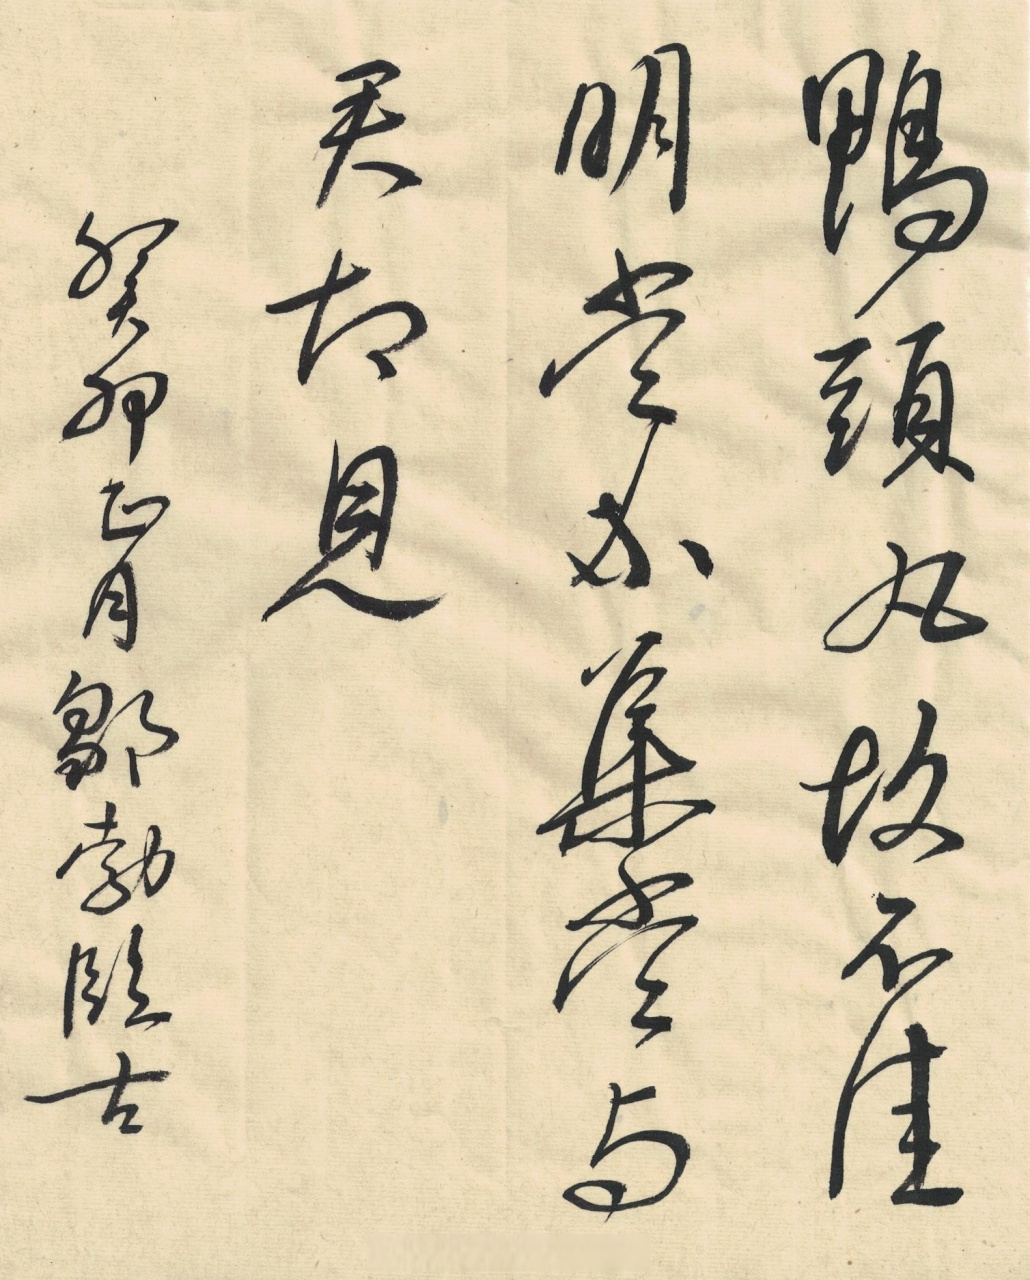 鴨頭丸故不佳
明當必集當與
君相見
癸卯正月鄒勃臨古